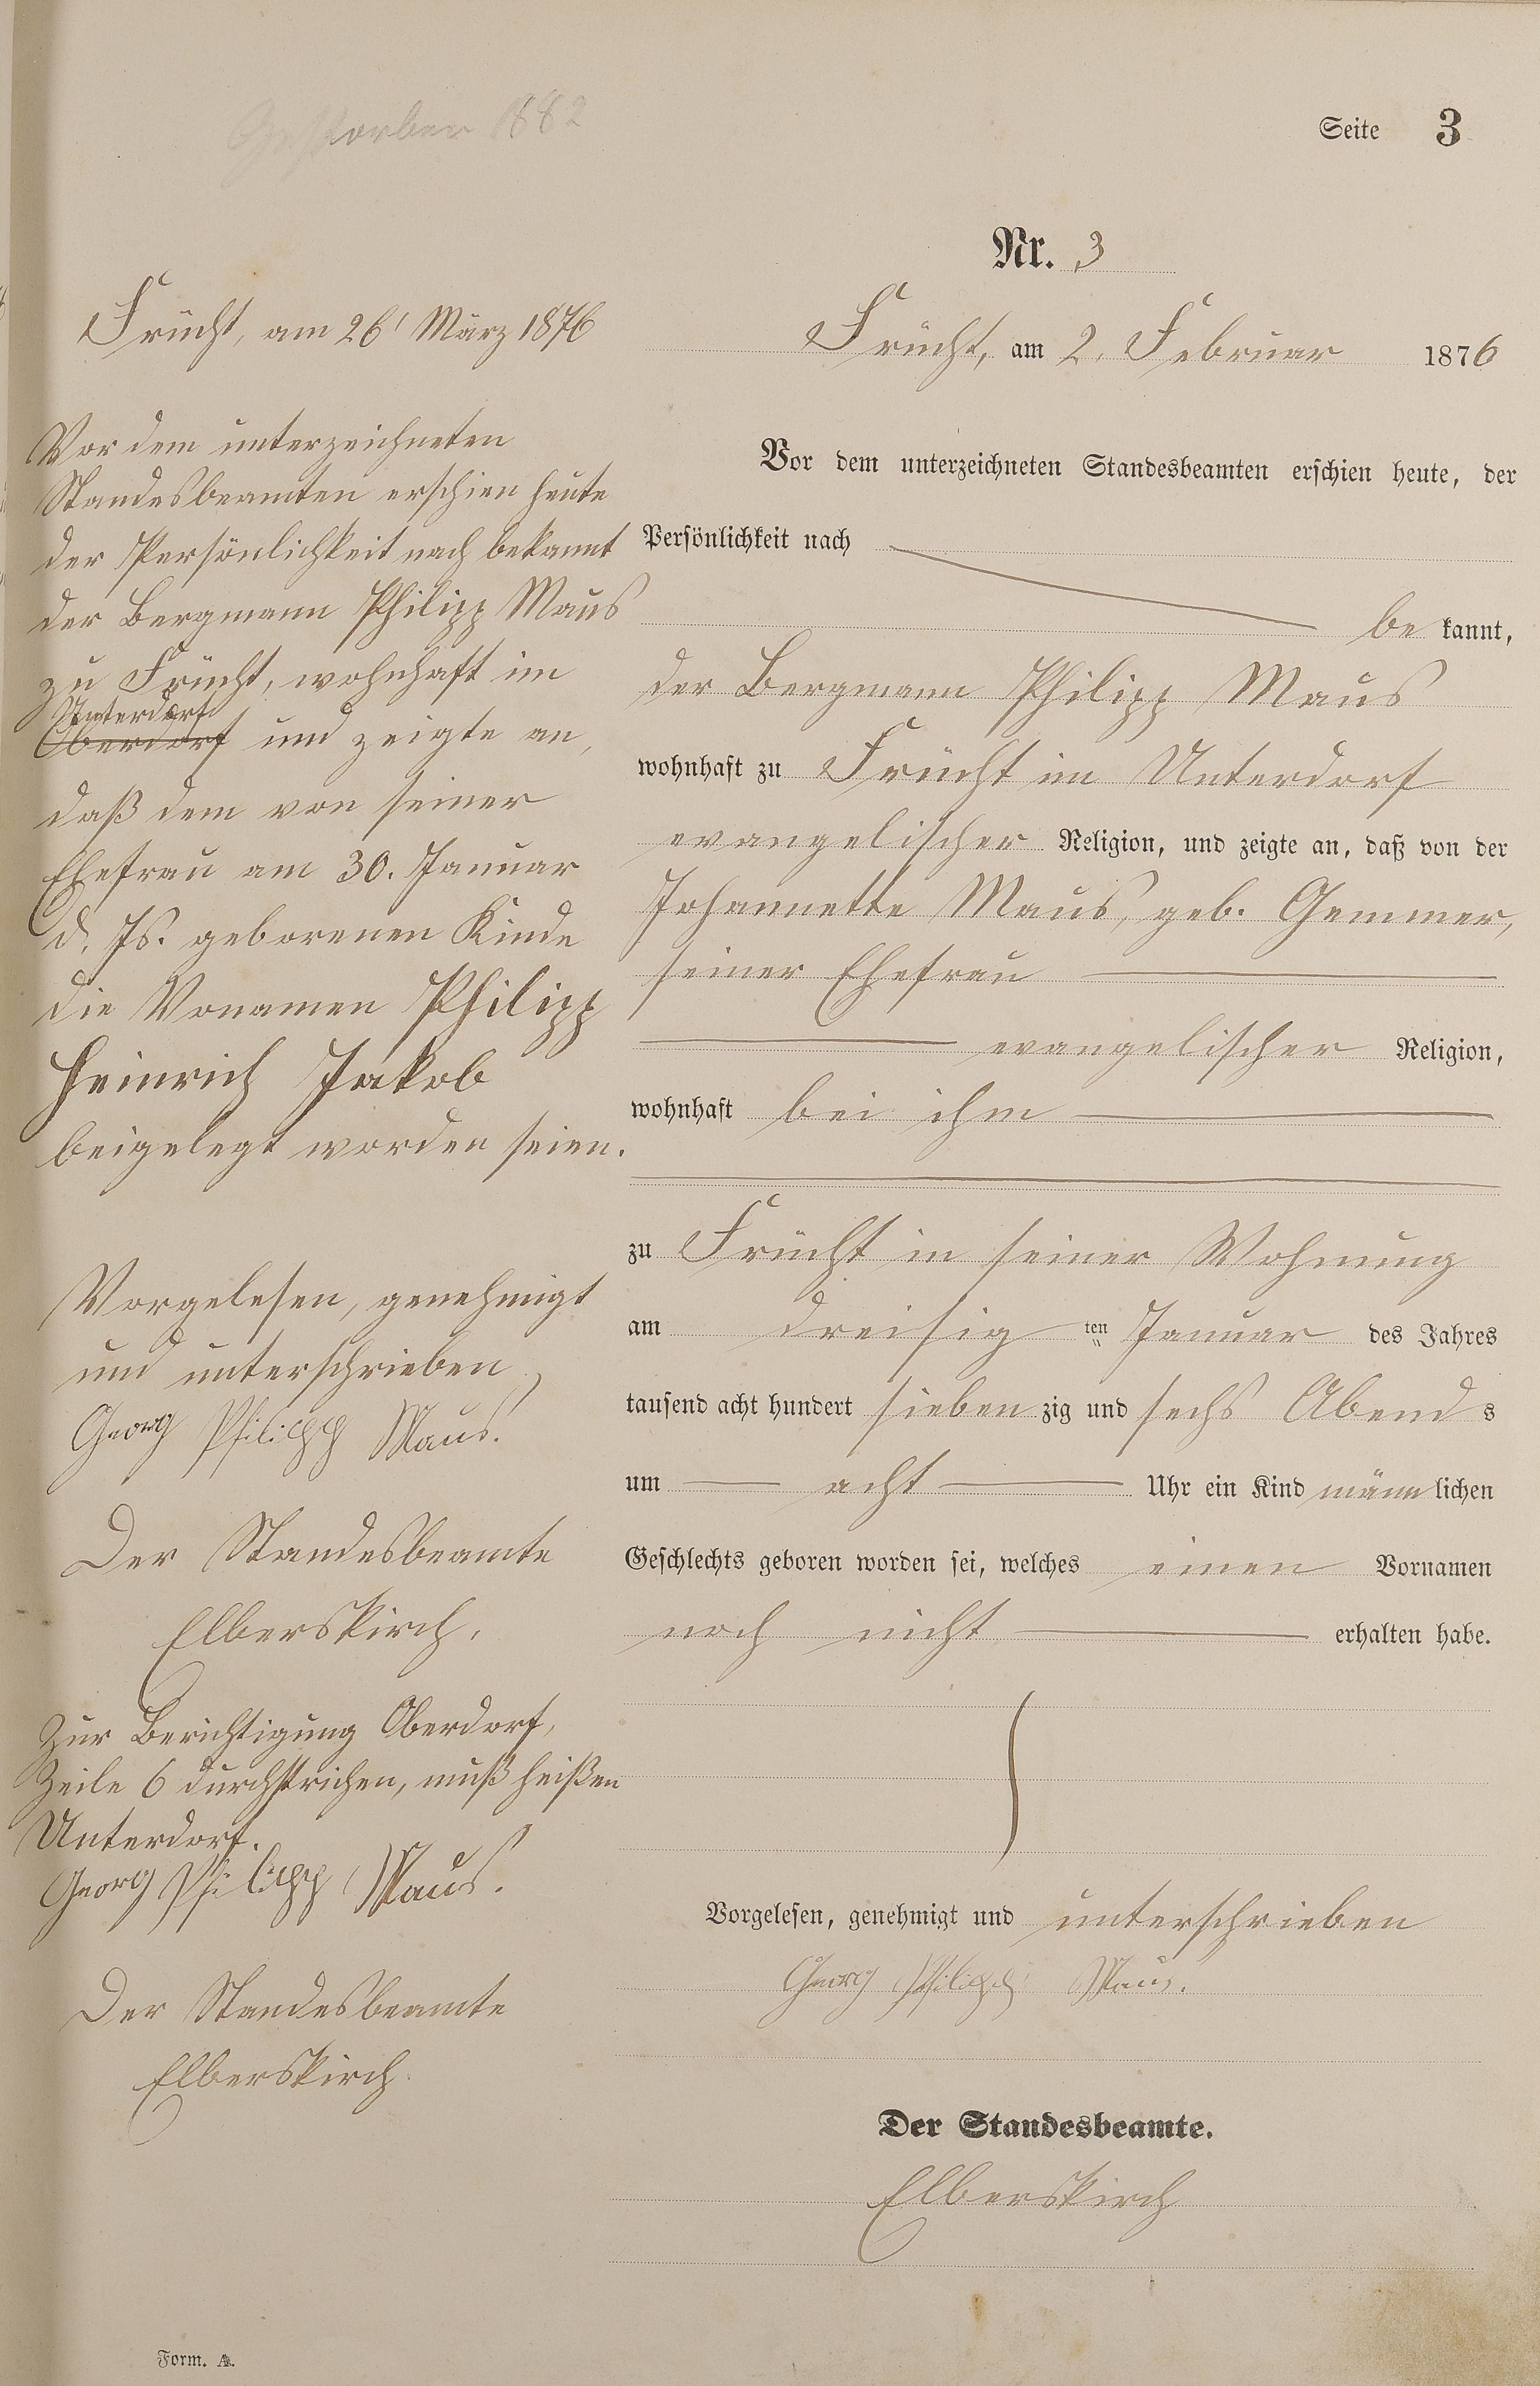 Gestorben 1882
Seite 3
Früht, am 26' März 1876
Vor dem unterzeichneten
Standesbeamten erschien heute
der Persönlichkeit nach bekannt
der Bergmann Philipp Maus
zu Frücht, wohnhaft im
Unterdorf
Oberdorf und zeigte an,
daß dem von seiner
Ehefrau am 30. Januar
d. Js. geborenen Kinde
die Vonamen Philipp
Heinrich Jakob
beigelegt worden seien.
Vorgelesen, genehmigt
und unterschrieben
Georg Philipp Maus.
Der Standesbeamte
Elberskirch.
Zur Berichtigung Oberdorf,
Zeile 6 durchstrichen, muß heißen
Unterdorf.
Georg Philipp Maus.
Der Standesbeamte
Elberskirch
Nr. 3
Frücht, am 2. Februar 1876
Vor dem unterzeichneten Standesbeamten erschien heute, der
Persönlichkeit nach
be kannt,
der Bergmann Philipp Maus
wohnhaft zu Frücht im Unterdorf
evangelischer Religion, und zeigte an, daß von der
Johannette Maus, geb. Gemmer,
seiner Ehefrau
evangelischer Religion,
wohnhaft bei ihm
zu Frücht in seiner Wohnung
am dreisig ten Januar des Jahres
tausend acht hundert sieben zig und sechs Abend s
um acht Uhr ein Kind männ lichen
Geschlechts geboren worden sei, welches einen Vornamen
noch nicht erhalten habe.
Vorgelesen, genehmigt und unterschrieben
Georg Philipp Maus.
Der Standesbeamte.
Elberskirch
Form. A.